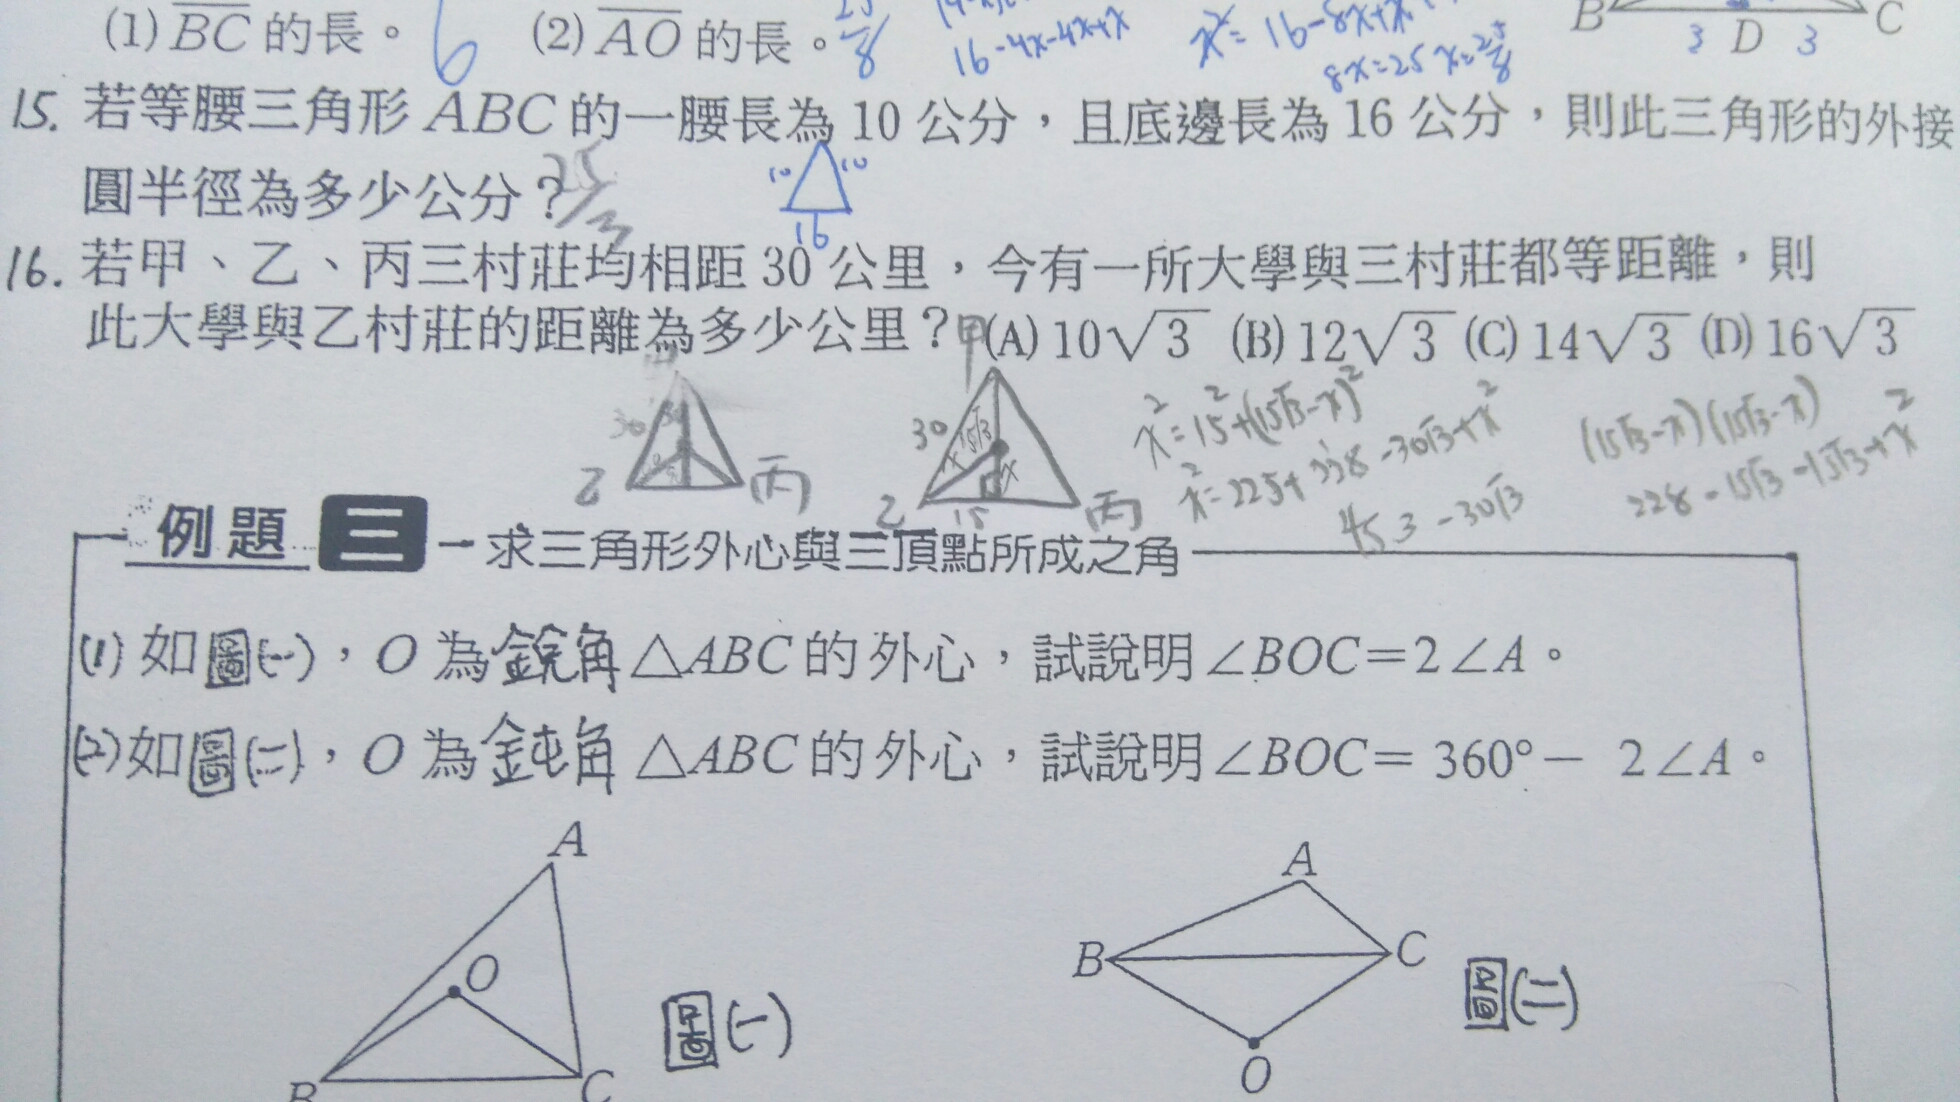 (1) BC 的長。 6 (2) AO 的長。 25/8
16-4x-4x+x x²=16-8x+x
8x=25 x=25/8
B 3 D 3 C
15. 若等腰三角形 ABC 的一腰長為 10 公分，且底邊長為 16 公分，則此三角形的外接
圓半徑為多少公分？ 25/3
10 10
16
16. 若甲、乙、丙三村莊均相距 30 公里，今有一所大學與三村莊都等距離，則
此大學與乙村莊的距離為多少公里？(A) 10√3 (B) 12√3 (C) 14√3 (D) 16√3
30 乙 丙
甲 30 15√3 x x 乙 15 丙
x²=15²+(15√3-x)²
x²=225+338-30√3+x²
453-30√3
(15√3-x)(15√3-x)
228-15√3-15√3+x²
例題 三 求三角形外心與三頂點所成之角
(1) 如圖(一)，O 為銳角△ABC 的外心，試說明∠BOC=2∠A。
(2) 如圖(二)，O 為鈍角△ABC 的外心，試說明∠BOC= 360°- 2∠A。
A O B C 圖(一)
A B C O 圖(二)